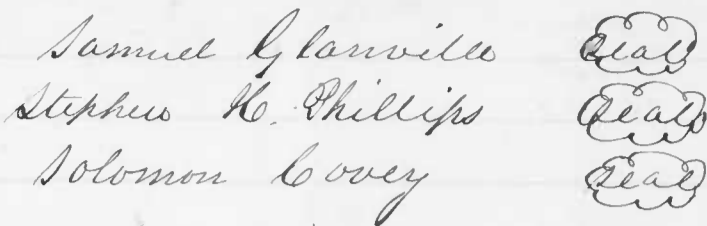 Samuel Glanville Seal
Stephen H. Phillips Seal
Solomon Covey Seal